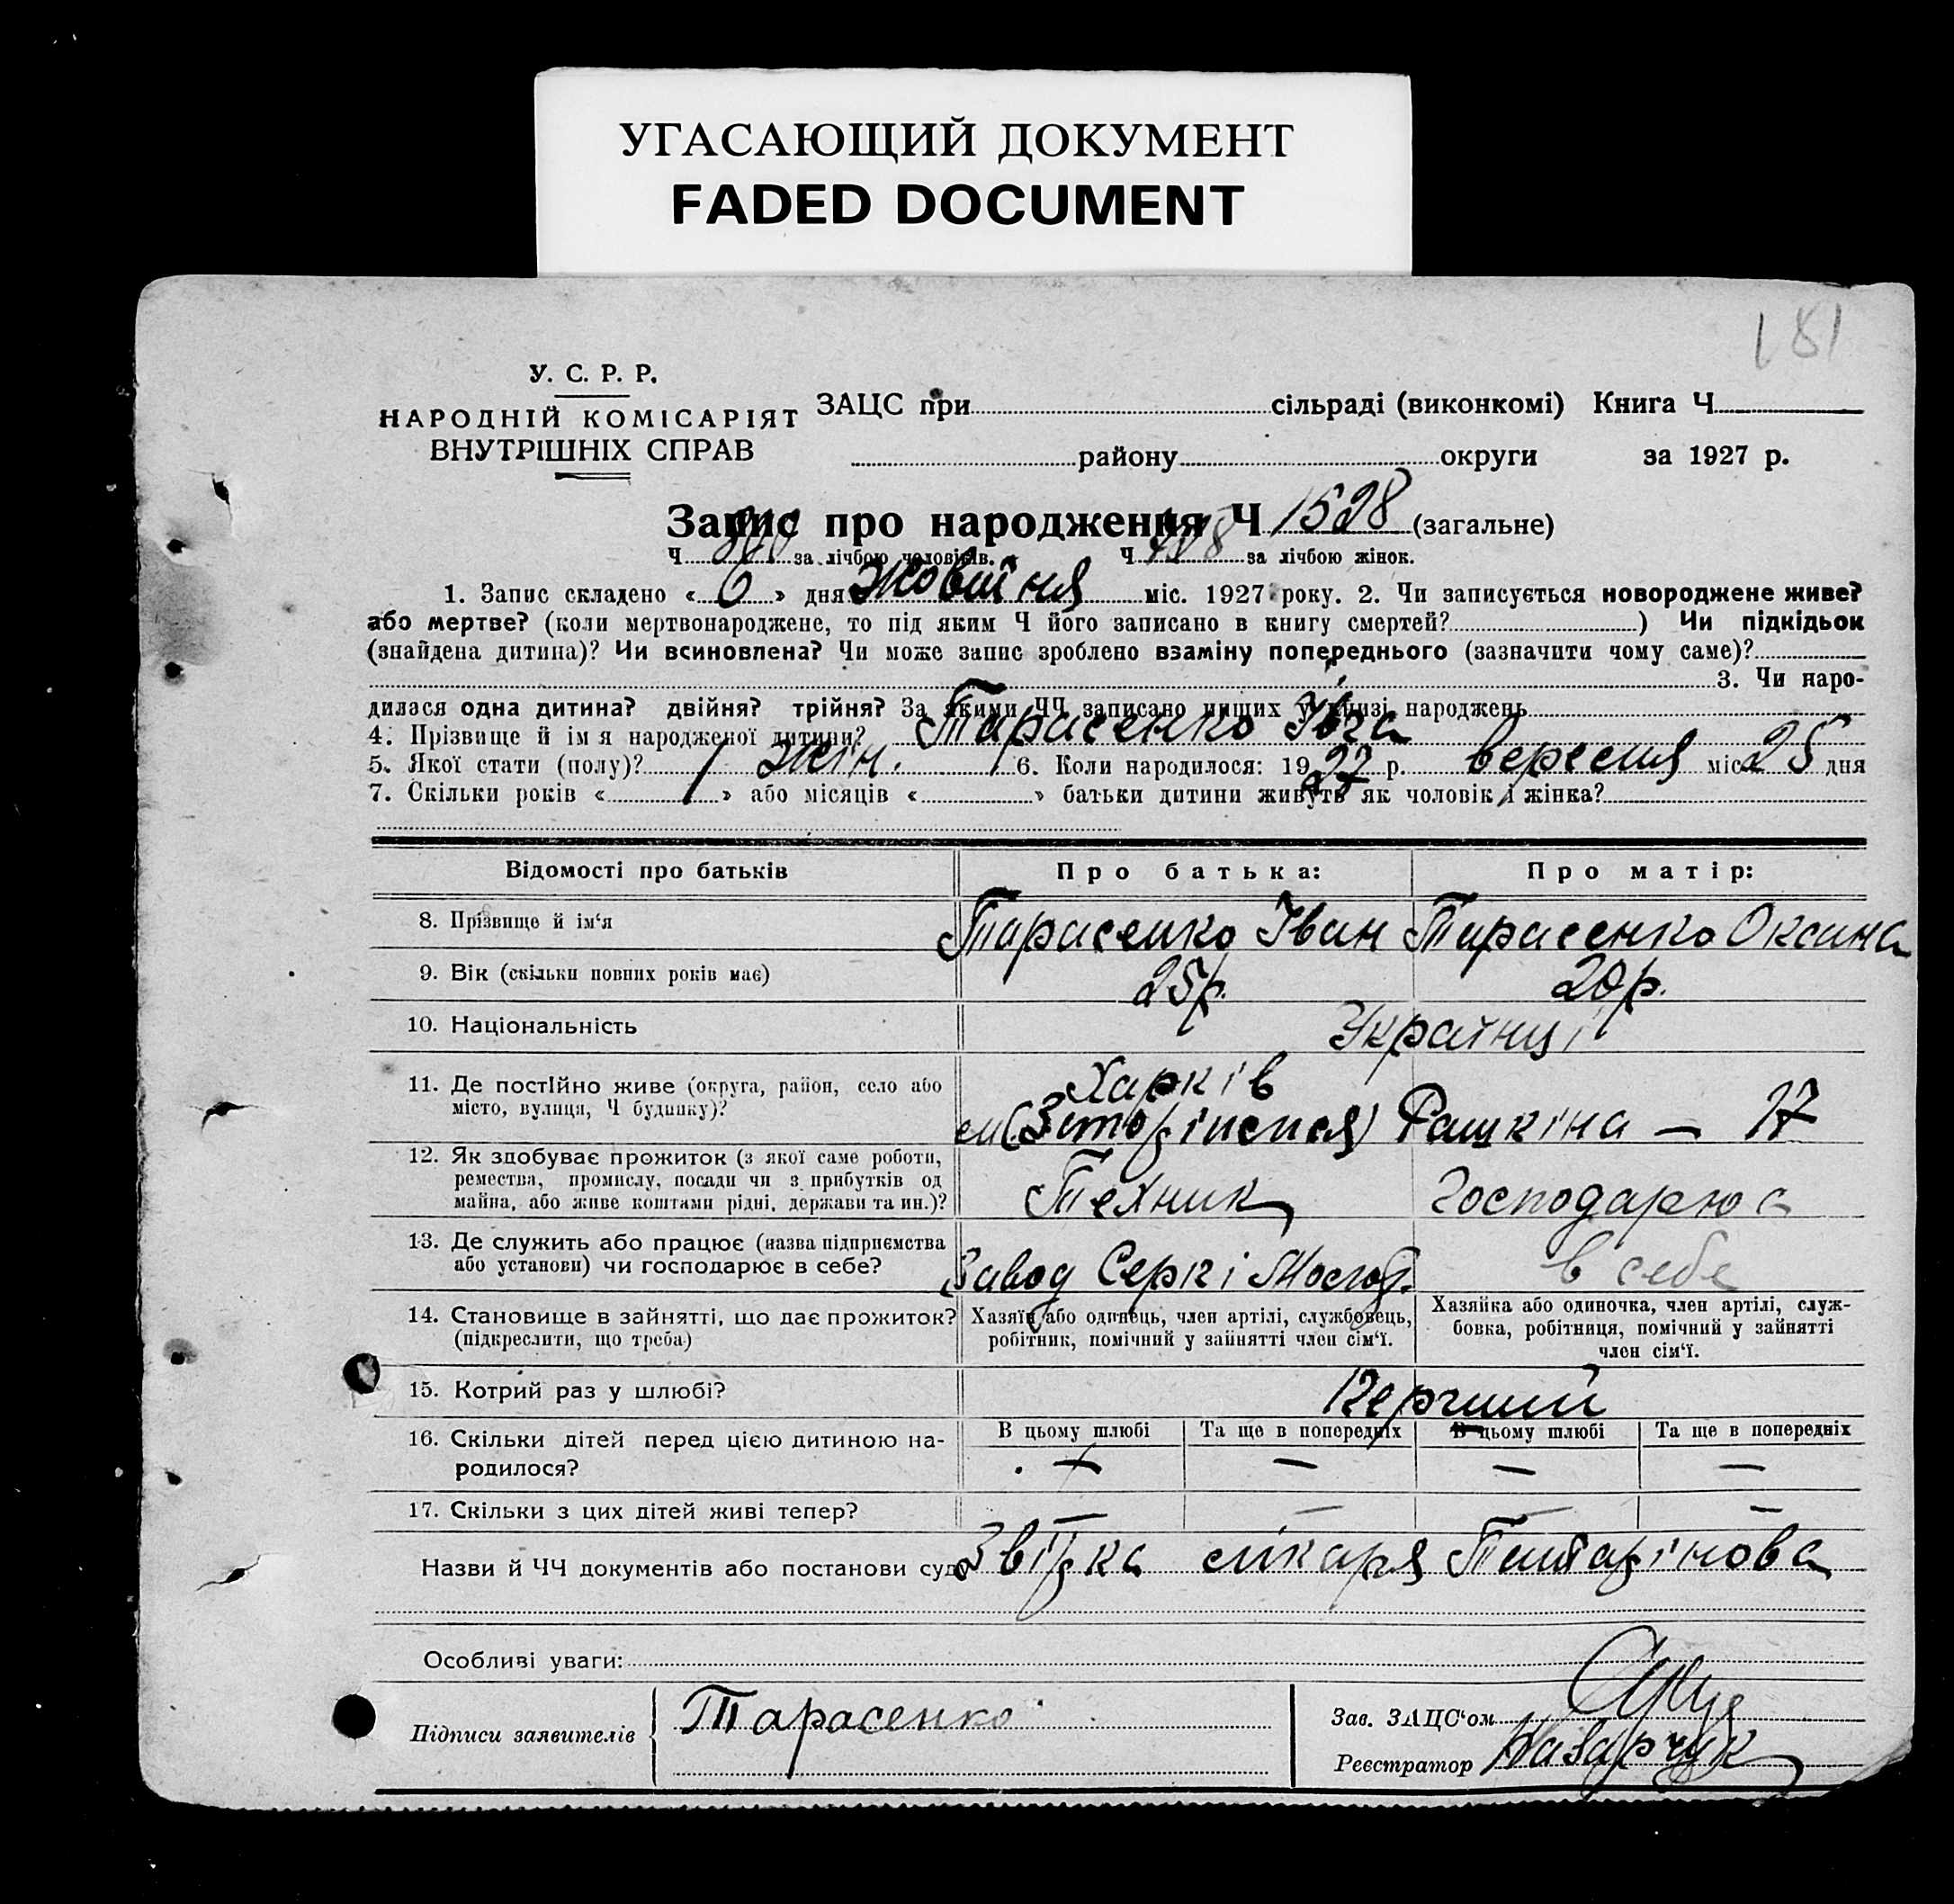 УГАСАЮЩИЙ ДОКУМЕНТ
FADED DOCUMENT
181
У. С. Р. Р.
НАРОДНІЙ КОМІСАРІЯТ
ВНУТРІШНІХ СПРАВ
ЗАЦС при сільраді (виконкомі) Книга Ч
району округи за 1927 р.
Запис про народження Ч 1528 (загальне)
Ч за лічбою чоловіків. Ч за лічбою жінок.
1. Запис складено « 6 » дня Жовтня міс. 1927 року. 2. Чи записується новороджене живе?
або мертве? (коли мертвонароджене, то під яким Ч його записано в книгу смертей? ) Чи підкідьок
(знайдена дитина)? Чи всиновлена? Чи може запис зроблено взаміну попереднього (зазначити чому саме)?
3. Чи наро-
дилася одна дитина? двійня? трійня? За якими ЧЧ записано инших у книзі народжень
4. Прізвище й ім я народженої дитини? Тарасенко
5. Якої стати (полу)? 1 жін. 6. Коли народилося: 1927 р. вересня міс 25 дня
7. Скільки років « 1 » або місяців « » батьки дитини живуть як чоловік і жінка?
Відомості про батьків Про батька: Про матір:
8. Прізвище й ім‘я Тарасенко Іван Тарасенко Оксана
9. Вік (скільки повних років має) 25р. 20р.
10. Національність Українці
11. Де постІйно живе (округа, район, село або
місто, вулиця, Ч будинку)?
Харків
Рашкіна — 17
12. Як здобуває прожиток (з якої саме роботи,
ремества, промислу, посади чи з прибутків од
майна, або живе коштами рідні, держави та ин.)?
Технік Господарює
13. Де служить або працює (назва підприємства
або установи) чи господарює в себе?
Завод Серп і Молот. в себе
14. Становище в зайнятті, що дає прожиток?
(підкреслити, що треба)
Хазяїн або одинець, член артілі, службовець,
робітник, помічний у зайнятті член сім‘ї.
Хазяйка або одиночка, член артілі, служ-
бовка, робітниця, помічний у зайнятті
член сім‘ї.
15. Котрий раз у шлюбі? Перший
16. Скільки дітей перед цією дитиною на-
родилося?
В цьому шлюбі Та ще в попередніх В цьому шлюбі Та ще в попередніх
— — — —
17. Скільки з цих дітей живі тепер? — — — —
Назви й ЧЧ документів або постанови суду Звістка лікаря
Особливі уваги:
Підписи заявителів Тарасенко
Зав. ЗАЦС‘ом
Реєстратор Назарчук